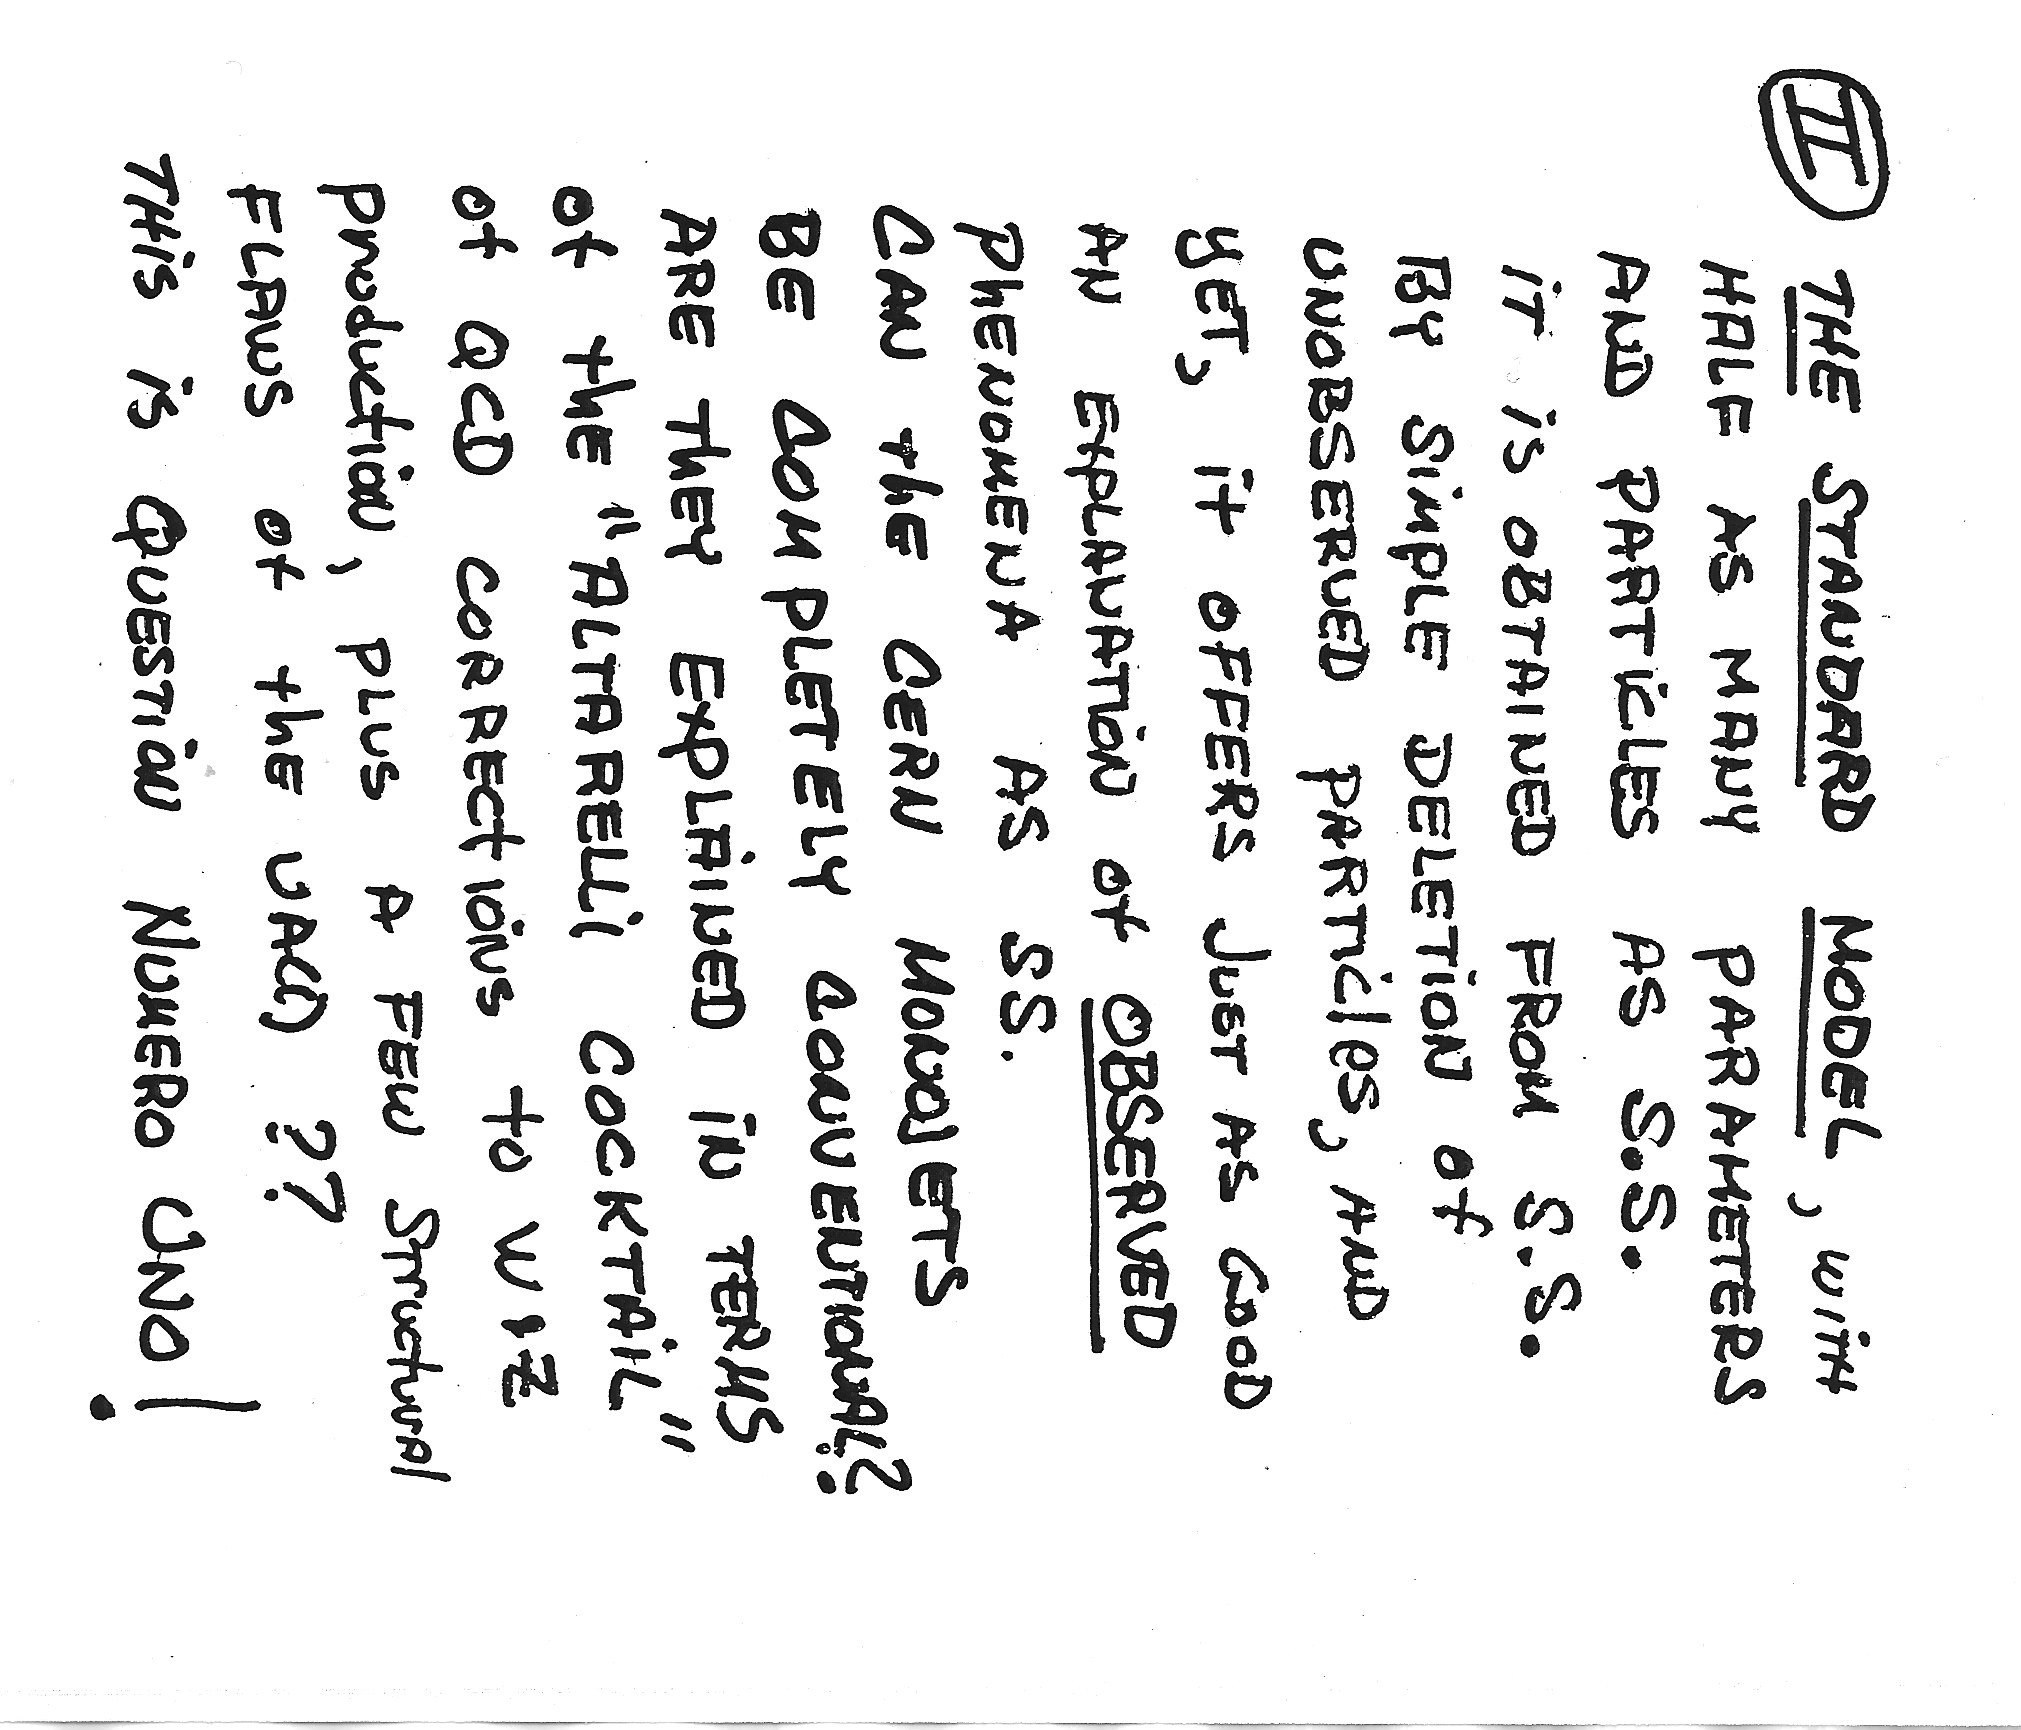 II THE STANDARD MODEL, WITH
HALF AS MANY PARAMETERS
AND PARTICLES AS S.S.
IT IS OBTAINED FROM S.S.
BY SIMPLE DELETION OF
UNOBSERVED PARTICLES, AND
YET, IT OFFERS JUST AS GOOD
AN EXPLANATION OF OBSERVED
PHENOMENA AS SS.
CAN THE CERN MONOJETS
BE COMPLETELY CONVENTIONAL??
ARE THEY EXPLAINED IN TERMS
OF THE "ALTARELLI COCKTAIL"
OF QCD CORRECTIONS TO W & Z
PRODUCTION, PLUS A FEW STRUCTURAL
FLAWS OF THE UA(1) ??
THIS IS QUESTION NUMERO UNO!